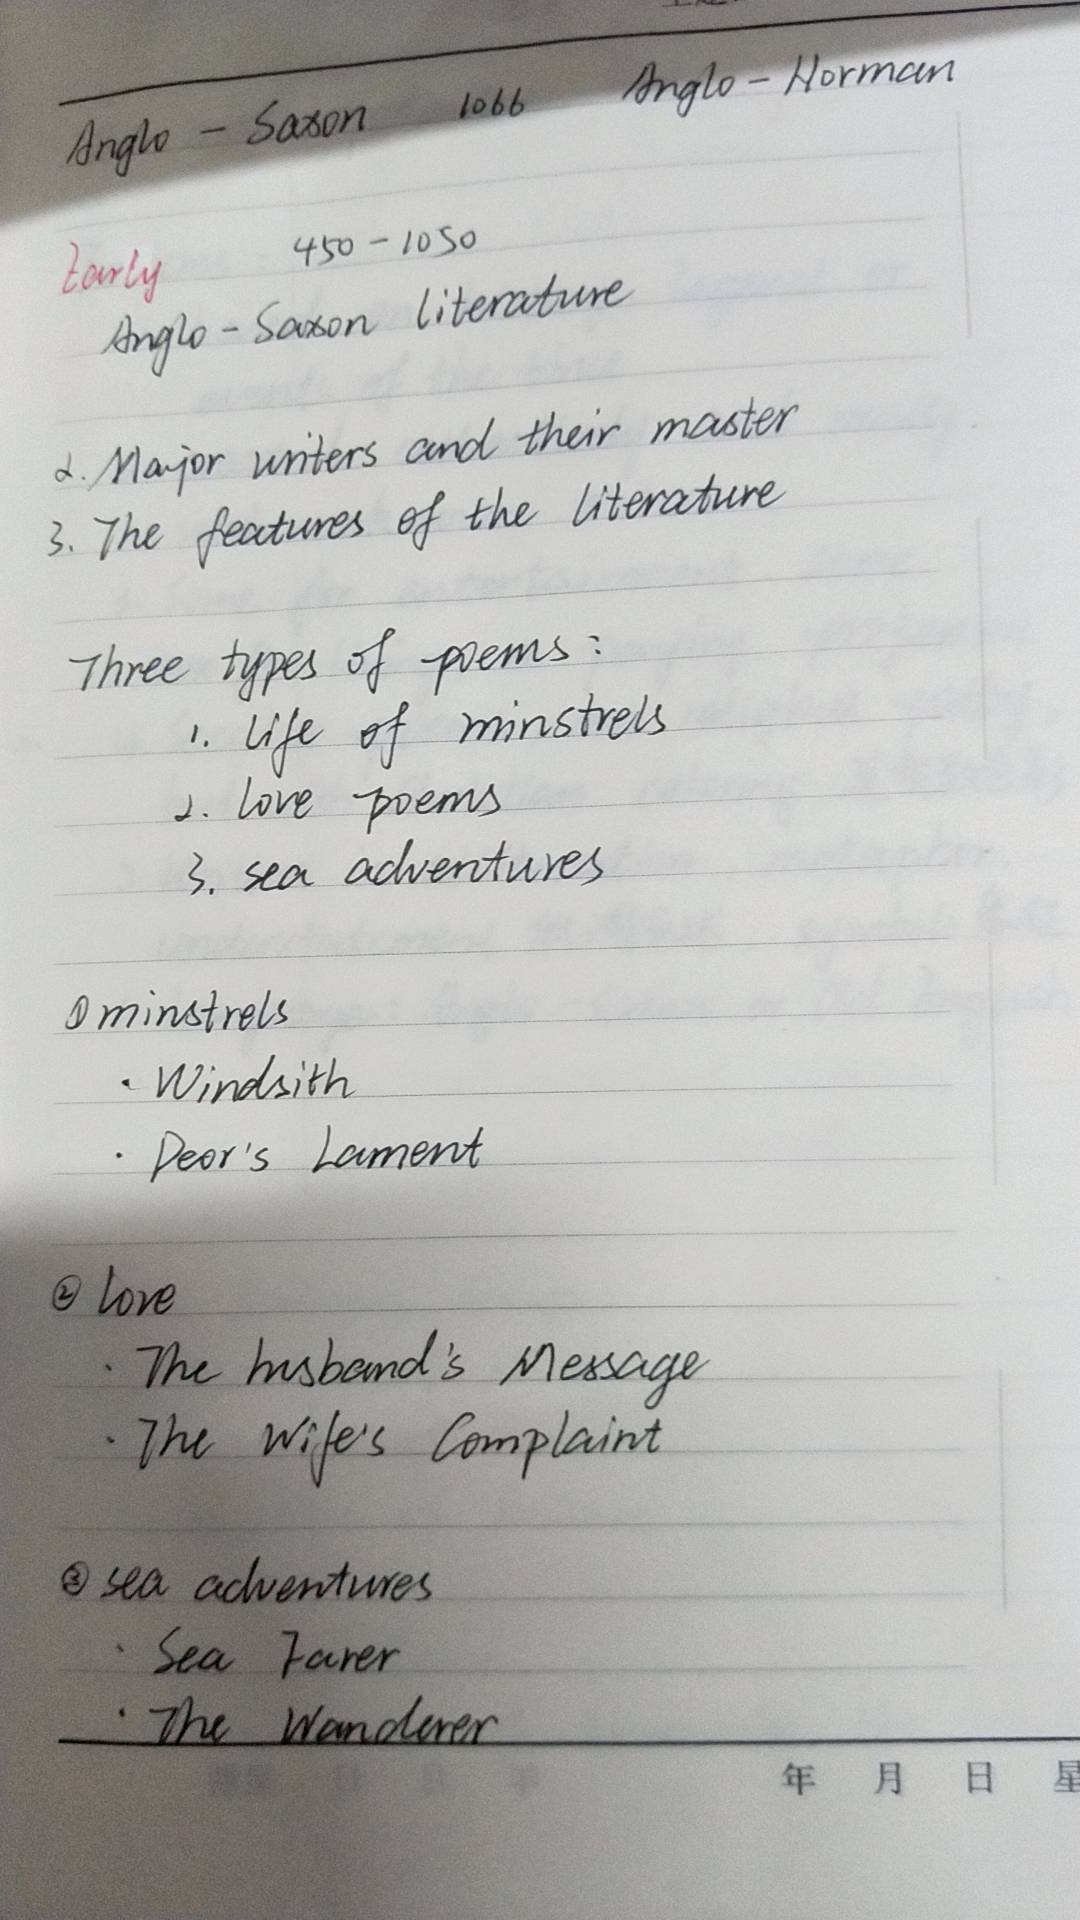 Anglo - Saxon 1066 Anglo - Norman
Early 450 - 1050
Anglo - Saxon literature
2. Major writers and their master
3. The features of the literature
Three types of poems:
1. life of minstrels
2. love poems
3. sea adventures
① minstrels
· Windsith
· Deor's Lament
② love
· The husband's Message
· The Wife's Complaint
③ sea adventures
· Sea Farer
· The Wanderer
年 月 日 星